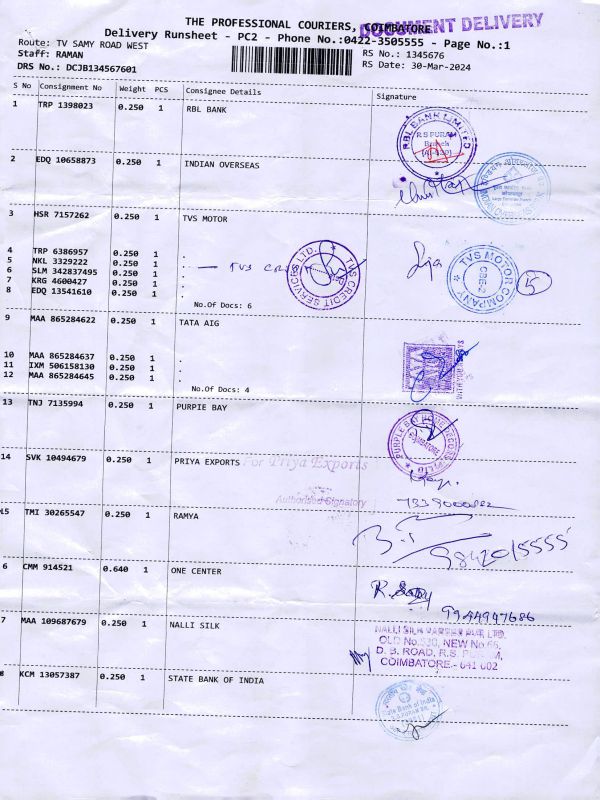 THE PROFESSIONAL COURIERS, COIMBATORE
DOCUMENT DELIVERY
Delivery Runsheet - PC2 - Phone No.:0422-3505555 - Page No.:1
Route: TV SAMY ROAD WEST
RS No.: 1345676
Staff: RAMAN
RS Date: 30-Mar-2024
DRS No.: DCJB134567601
S No Consignment No Weight PCS Consignee Details Signature
1 TRP 1398023 0.250 1 RBL BANK
RBL BANK LIMITED
R S PURAM
Branch
2 EDQ 10658873 0.250 1 INDIAN OVERSEAS
3 HSR 7157262 0.250 1 TVS MOTOR
4 TRP 6386957 0.250 1 .
5 NKL 3329222 0.250 1 .
6 SLM 342837495 0.250 1 .
7 KRG 4600427 0.250 1 .
8 EDQ 13541610 0.250 1 .
TVS
TVS CREDIT SERVICES LTD.
TVS MOTOR COMPANY
CBE-2
5
No.Of Docs: 6
9 MAA 865284622 0.250 1 TATA AIG
10 MAA 865284637 0.250 1 .
11 IXM 506158130 0.250 1 .
12 MAA 865284645 0.250 1 .
No.Of Docs: 4
13 TNJ 7135994 0.250 1 PURPIE BAY
14 SVK 10494679 0.250 1 PRIYA EXPORTS
For Priya Exports
Authorised Signatory
15 TMI 30265547 0.250 1 RAMYA
9842015555
6 CMM 914521 0.640 1 ONE CENTER
9944947686
7 MAA 109687679 0.250 1 NALLI SILK
OLD No. NEW No.
D. B. ROAD, R.S. PURAM,
COIMBATORE - 641 002
8 KCM 13057387 0.250 1 STATE BANK OF INDIA
State Bank of India